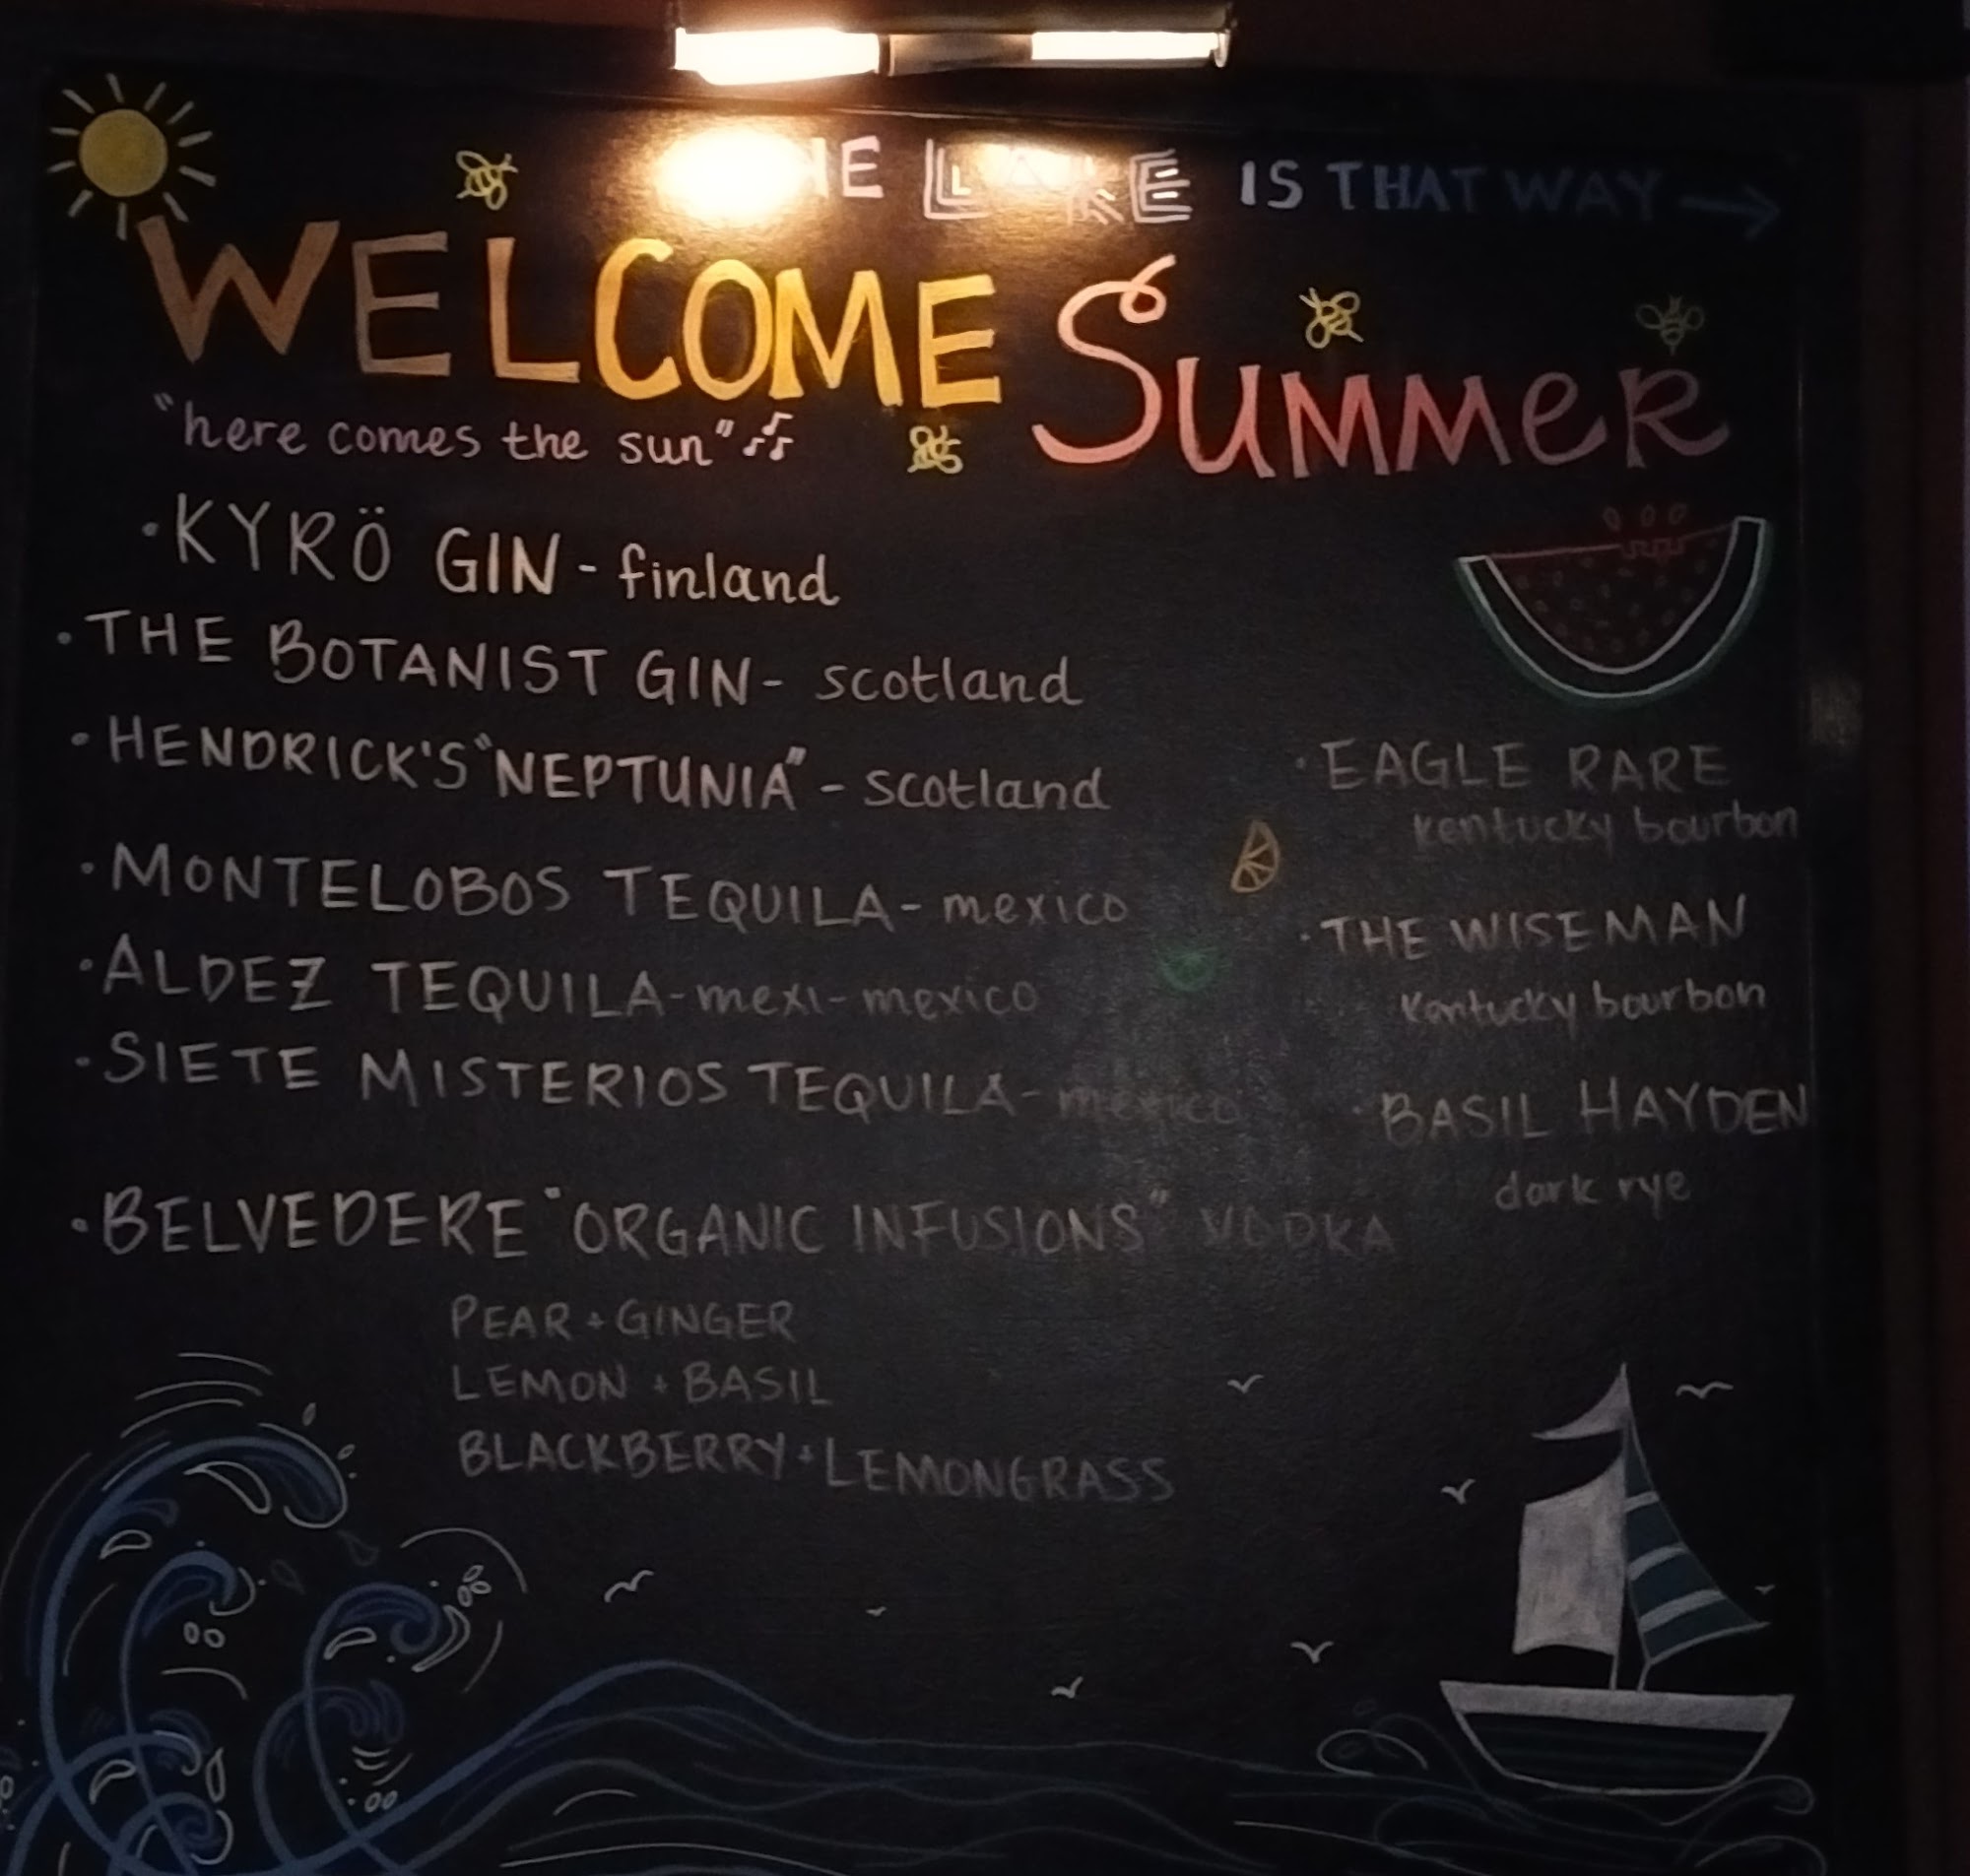 THE LAKE IS THAT WAY →
WELCOME SUMMER
"here comes the sun"
· KYRÖ GIN - finland
· THE BOTANIST GIN - scotland
· HENDRICK'S "NEPTUNIA" - scotland
· MONTELOBOS TEQUILA - mexico
· ALDEZ TEQUILA - mexi - mexico
· SIETE MISTERIOS TEQUILA - mexico
· BELVEDERE "ORGANIC INFUSIONS" VODKA
PEAR + GINGER
LEMON + BASIL
BLACKBERRY + LEMONGRASS
· EAGLE RARE
kentucky bourbon
· THE WISEMAN
Kentucky bourbon
· BASIL HAYDEN
dark rye